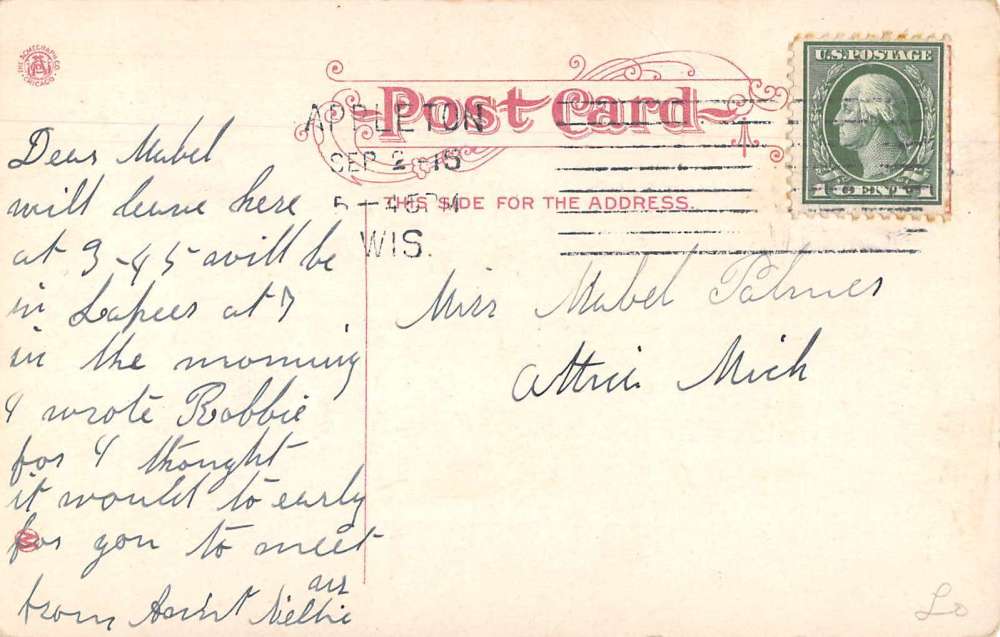 THE ACMEGRAPH CO.
CHICAGO
Post Card
U.S. POSTAGE
1 CENT 1
APPLETON
SEP 2 15
5-45PM
WIS.
THIS SIDE FOR THE ADDRESS.
Dear Mabel
will leave here
at 3-45 will be
in Lapeer at 7
in the morning
I wrote Robbie
for I thought
it would to early
for you to meet
from Aunt Nellie
Miss Mabel Palmer
Attica Mich